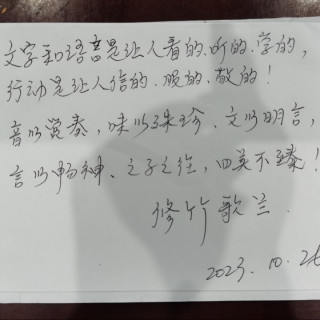 文字和语言是让人看的.听的.学的,
行动是让人信的.服的.敬的!
音以赏奏,味以殊珍,文以明言,
言以畅神.之子之往,四美不臻!
修竹歌兰.
2023.10.26